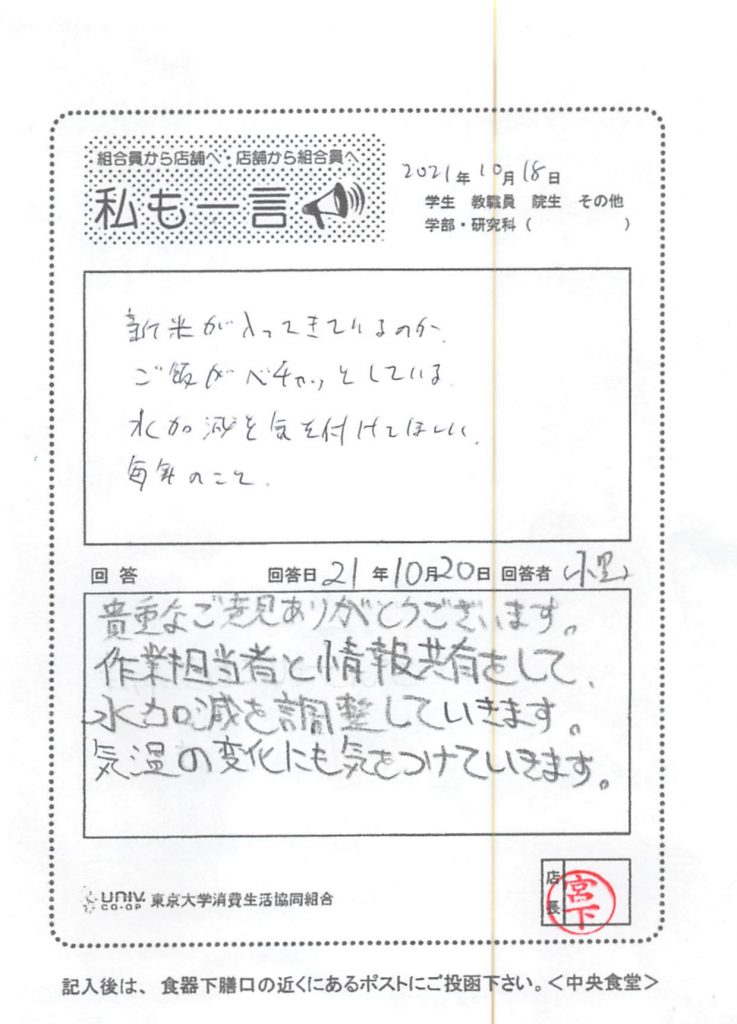 組合員から店舗へ・店舗から組合員へ
私も一言
2021年10月18日
学生 教職員 院生 その他
学部・研究科（ ）
新米が入ってきているのか、
ご飯がベチャッとしている。
水加減を気を付けてほしい。
毎年のこと。
回答 回答日 21年10月20日 回答者 小里
貴重なご意見ありがとうございます。
作業担当者と情報共有をして、
水加減を調整していきます。
気温の変化にも気をつけていきます。
UNIV. CO-OP 東京大学消費生活協同組合
店長 宮下
記入後は、食器下膳口の近くにあるポストにご投函下さい。＜中央食堂＞